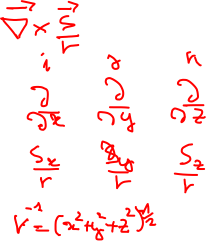 ∇⃗ × S⃗/r
i j k
∂/∂x ∂/∂y ∂/∂z
Sx/r Sy/r Sz/r
r⁻¹ = (x² + y² + z²)^1/2